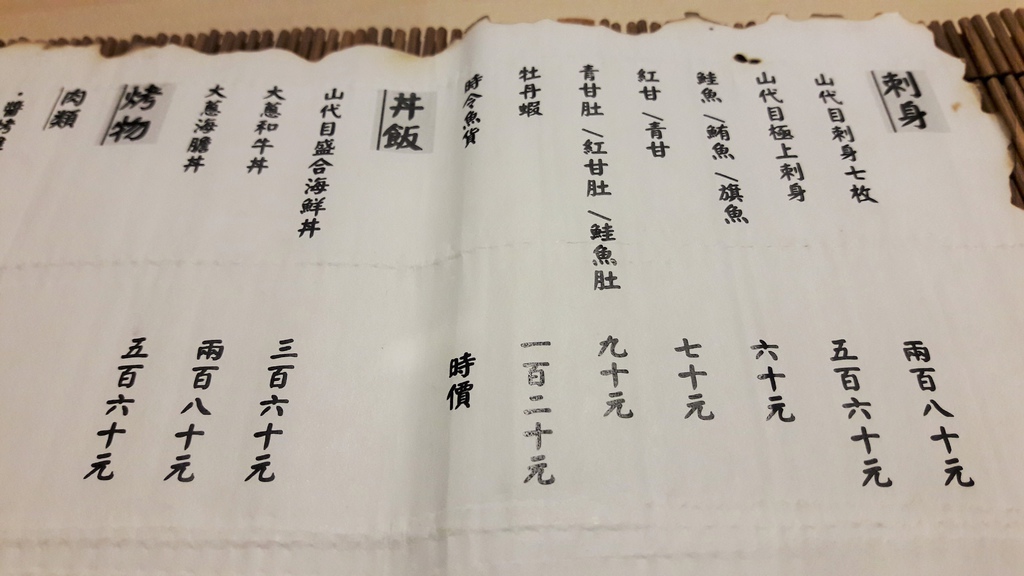 刺身
山代目刺身七枚 兩百八十元
山代目極上刺身 五百六十元
鮭魚/鮪魚/旗魚 六十元
紅甘/青甘 七十元
青甘肚/紅甘肚/鮭魚肚 九十元
牡丹蝦 一百二十元
時令魚寶 時價
丼飯
山代目盛合海鮮丼 三百六十元
大蔥和牛丼 兩百八十元
大蔥海膽丼 五百六十元
烤物
肉類
・醬烤